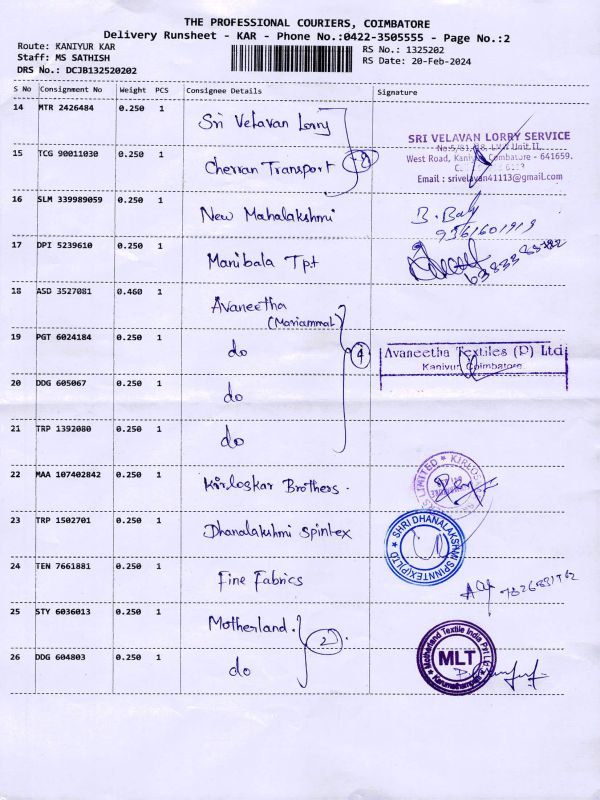 THE PROFESSIONAL COURIERS, COIMBATORE
Delivery Runsheet - KAR - Phone No.:0422-3505555 - Page No.:2
Route: KANIYUR KAR
Staff: MS SATHISH
DRS No.: DCJB132520202
RS No.: 1325202
RS Date: 20-Feb-2024
S No Consignment No Weight PCS Consignee Details Signature
14 MTR 2426484 0.250 1 Sri Velavan Lorry
SRI VELAVAN LORRY SERVICE
West Road, Coimbatore - 641659.
Email : srivelavan41113@gmail.com
15 TCG 90011030 0.250 1 Cheran Transport
16 SLM 339989059 0.250 1 New Mahalakshmi
9361601919
17 DPI 5239610 0.250 1 Manibala Tpt
18 ASD 3527081 0.460 1 Avaneetha
(Mariammal)
19 PGT 6024184 0.250 1 do 4
Avaneetha Textiles (P) Ltd
Kaniyur, Coimbatore
20 DDG 605067 0.250 1 do
21 TRP 1392080 0.250 1 do
22 MAA 107402842 0.250 1 Kirloskar Brothers.
23 TRP 1502701 0.250 1 Dhanalakshmi Spintex
SHRI DHANALAKSHMI SPINNTEX(P)LTD
24 TEN 7661881 0.250 1 Fine Fabrics
25 STY 6036013 0.250 1 Motherland. 2
Motherland Textile India Pvt Ltd
MLT
26 DDG 604803 0.250 1 do